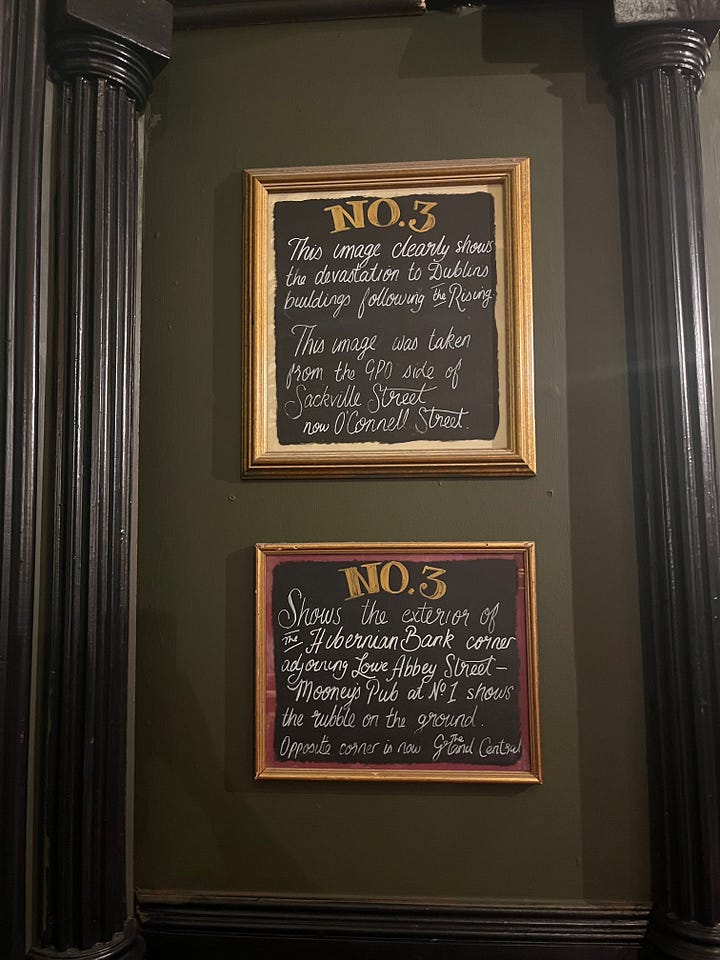 NO.3
This image clearly shows
the devastation to Dublins
buildings following the Rising
This image was taken
from the GPO side of
Sackville Street
now O'Connell Street.
NO.3
Shows the exterior of
The Hibernian Bank corner
adjoining Lowe Abbey Street-
Mooney's Pub at Nº1 shows
the rubble on the ground.
Opposite corner is now The Grand Central